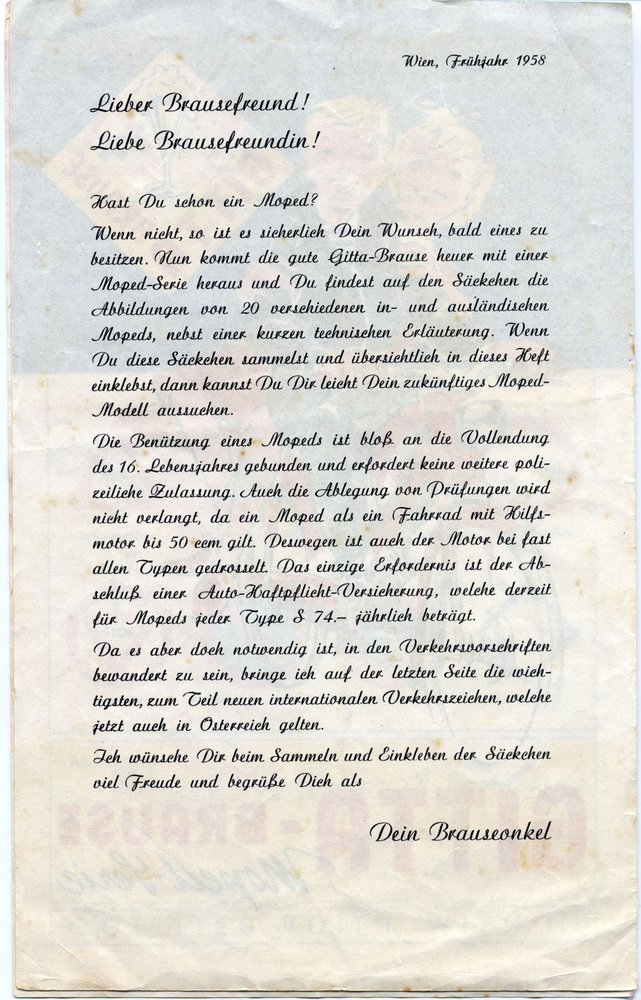 Wien, Frühjahr 1958
Lieber Brausefreund!
Liebe Brausefreundin!
Hast Du schon ein Moped?
Wenn nicht, so ist es sicherlich Dein Wunsch, bald eines zu
besitzen. Nun kommt die gute Gitta-Brause heuer mit einer
Moped-Serie heraus und Du findest auf den Säckchen die
Abbildungen von 20 verschiedenen in- und ausländischen
Mopeds, nebst einer kurzen technischen Erläuterung. Wenn
Du diese Säckchen sammelst und übersichtlich in dieses Heft
einklebst, dann kannst Du Dir leicht Dein zukünftiges Moped-
Modell aussuchen.
Die Benützung eines Mopeds ist bloß an die Vollendung
des 16. Lebensjahres gebunden und erfordert keine weitere poli-
zeiliche Zulassung. Auch die Ablegung von Prüfungen wird
nicht verlangt, da ein Moped als ein Fahrrad mit Hilfs-
motor bis 50 ccm gilt. Deswegen ist auch der Motor bei fast
allen Typen gedrosselt. Das einzige Erfordernis ist der Ab-
schluß einer Auto-Haftpflicht-Versicherung, welche derzeit
für Mopeds jeder Type S 74.– jährlich beträgt.
Da es aber doch notwendig ist, in den Verkehrsvorschriften
bewandert zu sein, bringe ich auf der letzten Seite die wich-
tigsten, zum Teil neuen internationalen Verkehrszeichen, welche
jetzt auch in Österreich gelten.
Ich wünsche Dir beim Sammeln und Einkleben der Säckchen
viel Freude und begrüße Dich als
Dein Brauseonkel
GITTA-BRAUSE
Moped-Serie